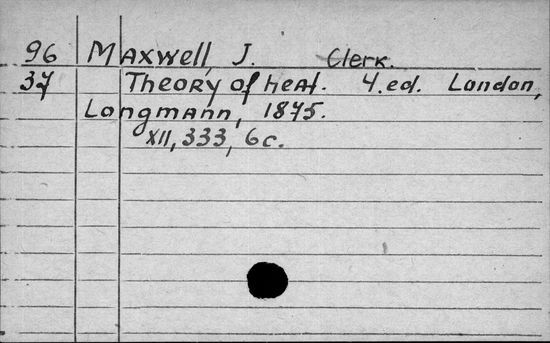 96 Maxwell, J. Clerk.
37 Theory of heat. 4.ed. London,
Longmann, 1875.
XII, 333, 6c.